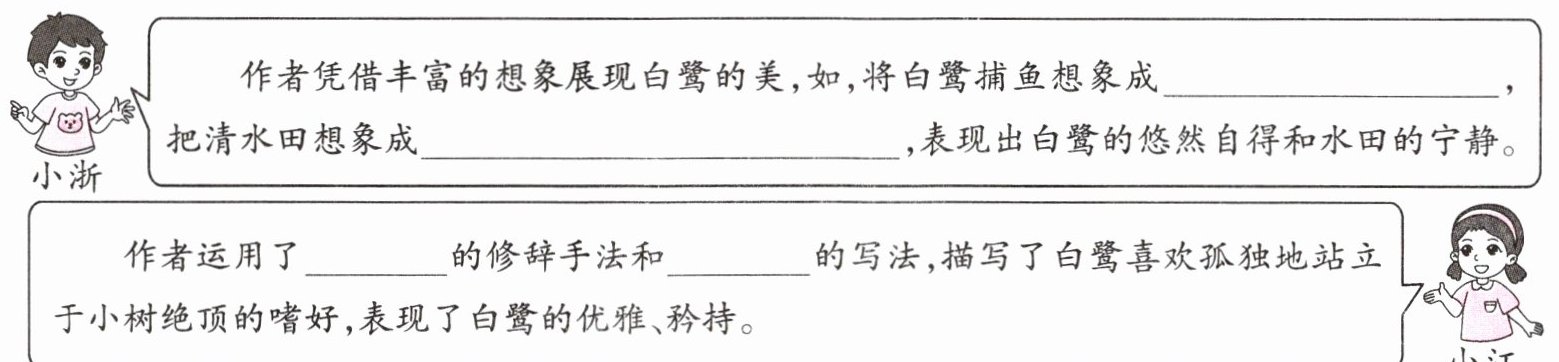 作者凭借丰富的想象展现白鹭的美,如,将白鹭捕鱼想象成__________,
把清水田想象成__________,表现出白鹭的悠然自得和水田的宁静。
小浙
作者运用了______的修辞手法和______的写法,描写了白鹭喜欢孤独地站立
于小树绝顶的嗜好,表现了白鹭的优雅、矜持。